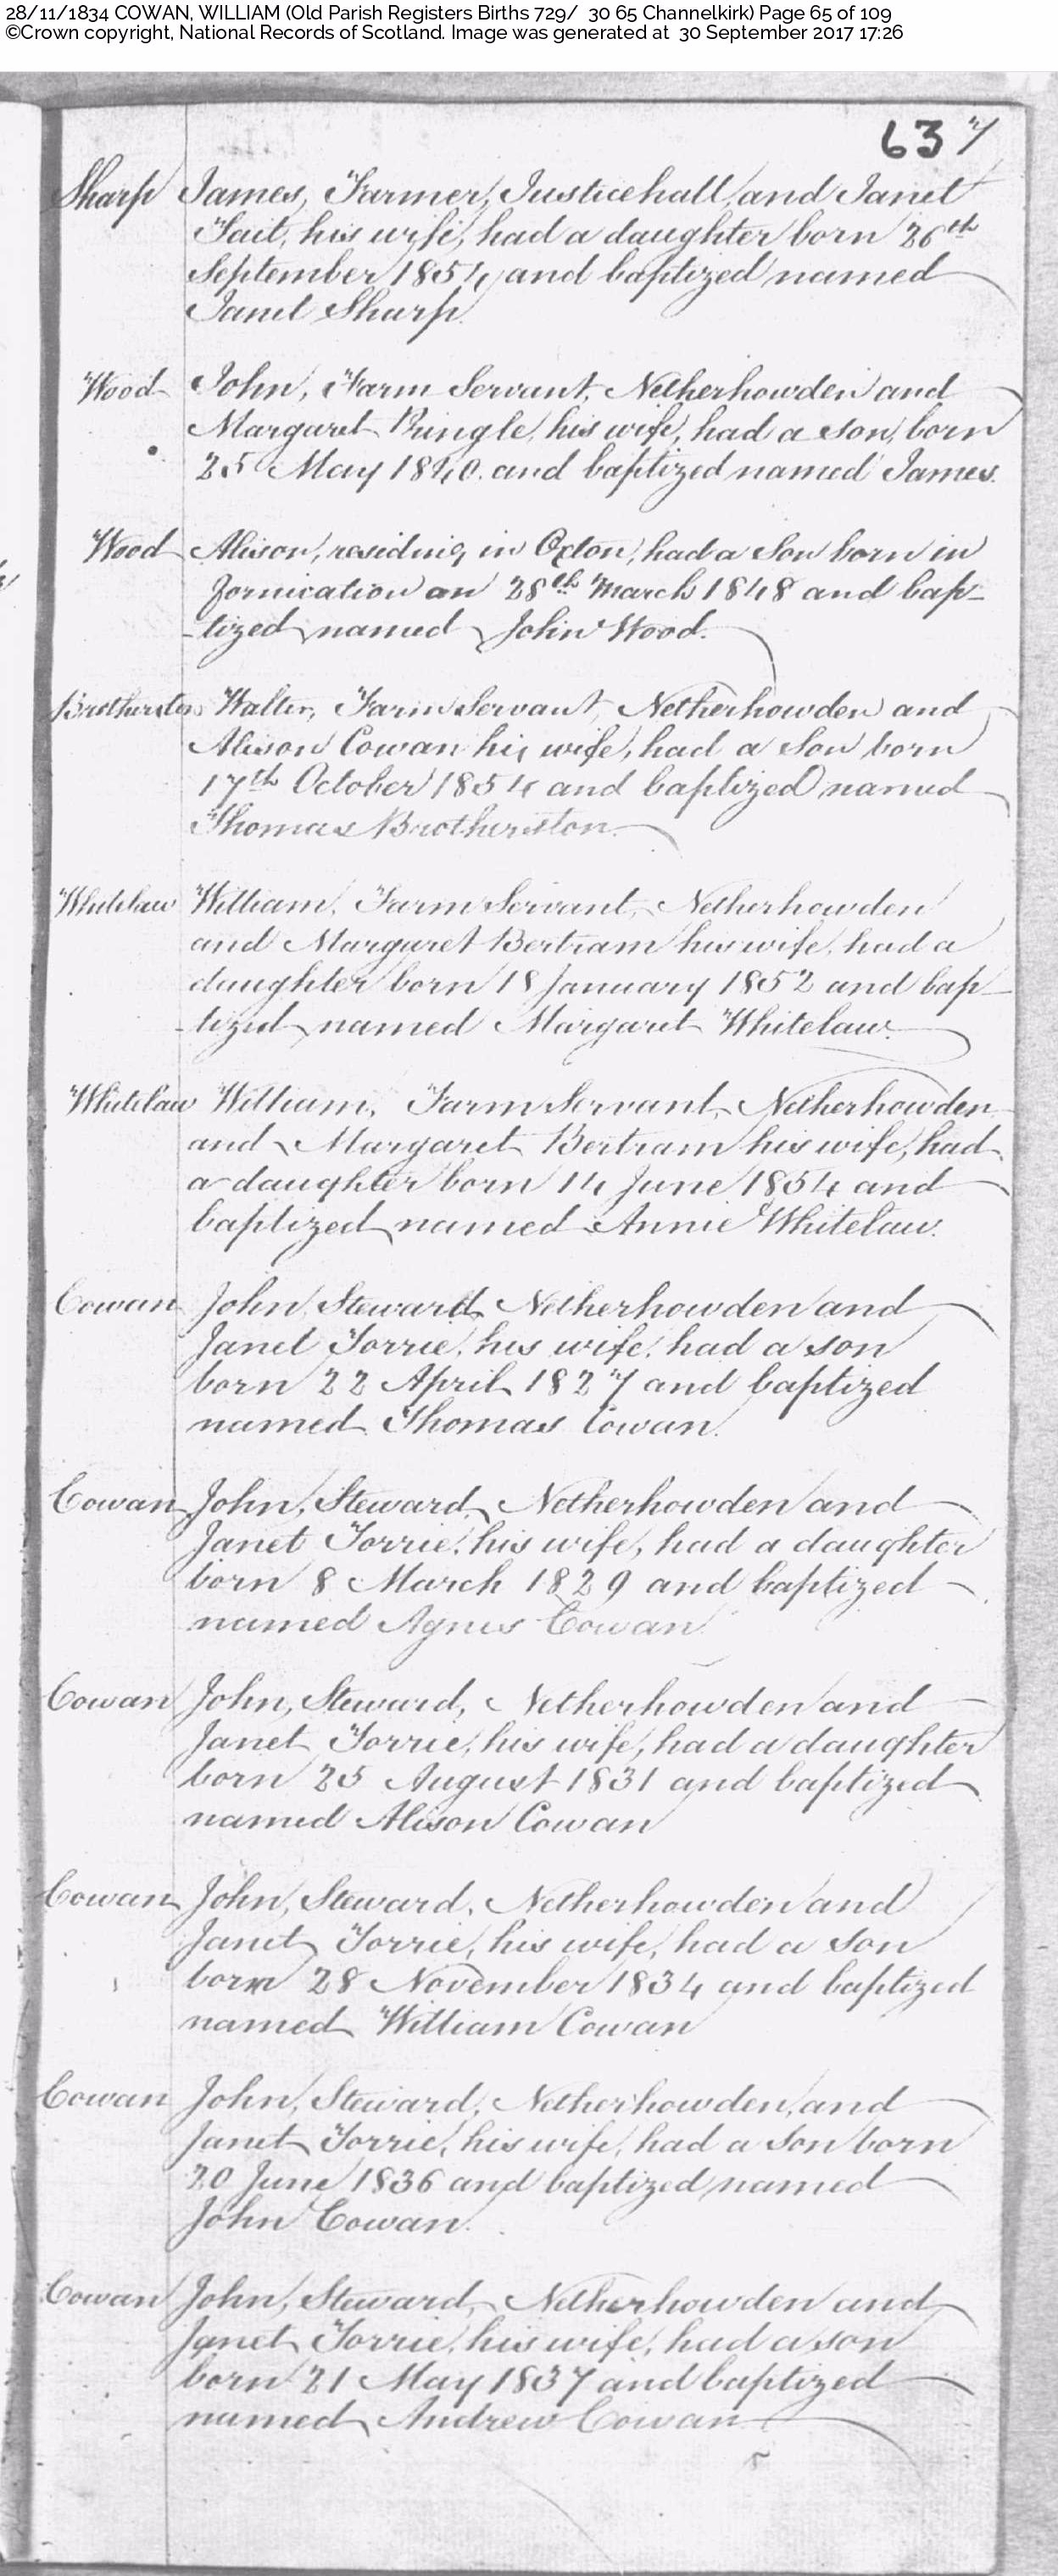 28/11/1834 COWAN, WILLIAM (Old Parish Registers Births 729/ 30 65 Channelkirk) Page 65 of 109
©Crown copyright, National Records of Scotland. Image was generated at 30 September 2017 17:26
637
Sharp James, Farmer, Justicehall, and Janet
Tait, his wife, had a daughter born 26th
September 1854, and baptized named
Janet Sharp.
Wood John, Farm Servant, Netherhowden and
Margaret Pringle, his wife, had a son, born
25 May 1840. and baptized named James.
Wood Alison, residing in Oxton, had a Son born in
fornication on 28th March 1848 and bap-
-tized named John Wood.
Brotherston Walter, Farm Servant, Netherhowden and
Alison Cowan his wife, had a Son born
17th October 1854 and baptized named
Thomas Brotherston.
Whitelaw William, Farm Servant, Netherhowden
and Margaret Bertram his wife, had a
daughter born 18 January 1852 and bap-
-tized named Margaret Whitelaw.
Whitelaw William, Farm Servant, Netherhowden
and Margaret Bertram his wife, had
a daughter born 14 June 1854 and
baptized named Annie Whitelaw.
Cowan John, Steward, Netherhowden and
Janet Torrie, his wife, had a son
born 22 April 1827 and baptized
named Thomas Cowan.
Cowan John, Steward, Netherhowden and
Janet Torrie, his wife, had a daughter
born 8 March 1829 and baptized
named Agnes Cowan.
Cowan John, Steward, Netherhowden and
Janet Torrie, his wife, had a daughter
born 25 August 1831 and baptized
named Alison Cowan
Cowan John, Steward, Netherhowden and
Janet Torrie, his wife, had a Son
born 28 November 1834 and baptized
named William Cowan
Cowan John, Steward, Netherhowden, and
Janet Torrie, his wife, had a Son born
20 June 1836 and baptized named
John Cowan.
Cowan John, Steward, Netherhowden and
Janet Torrie, his wife, had a son
born 21 May 1837 and baptized
named Andrew Cowan